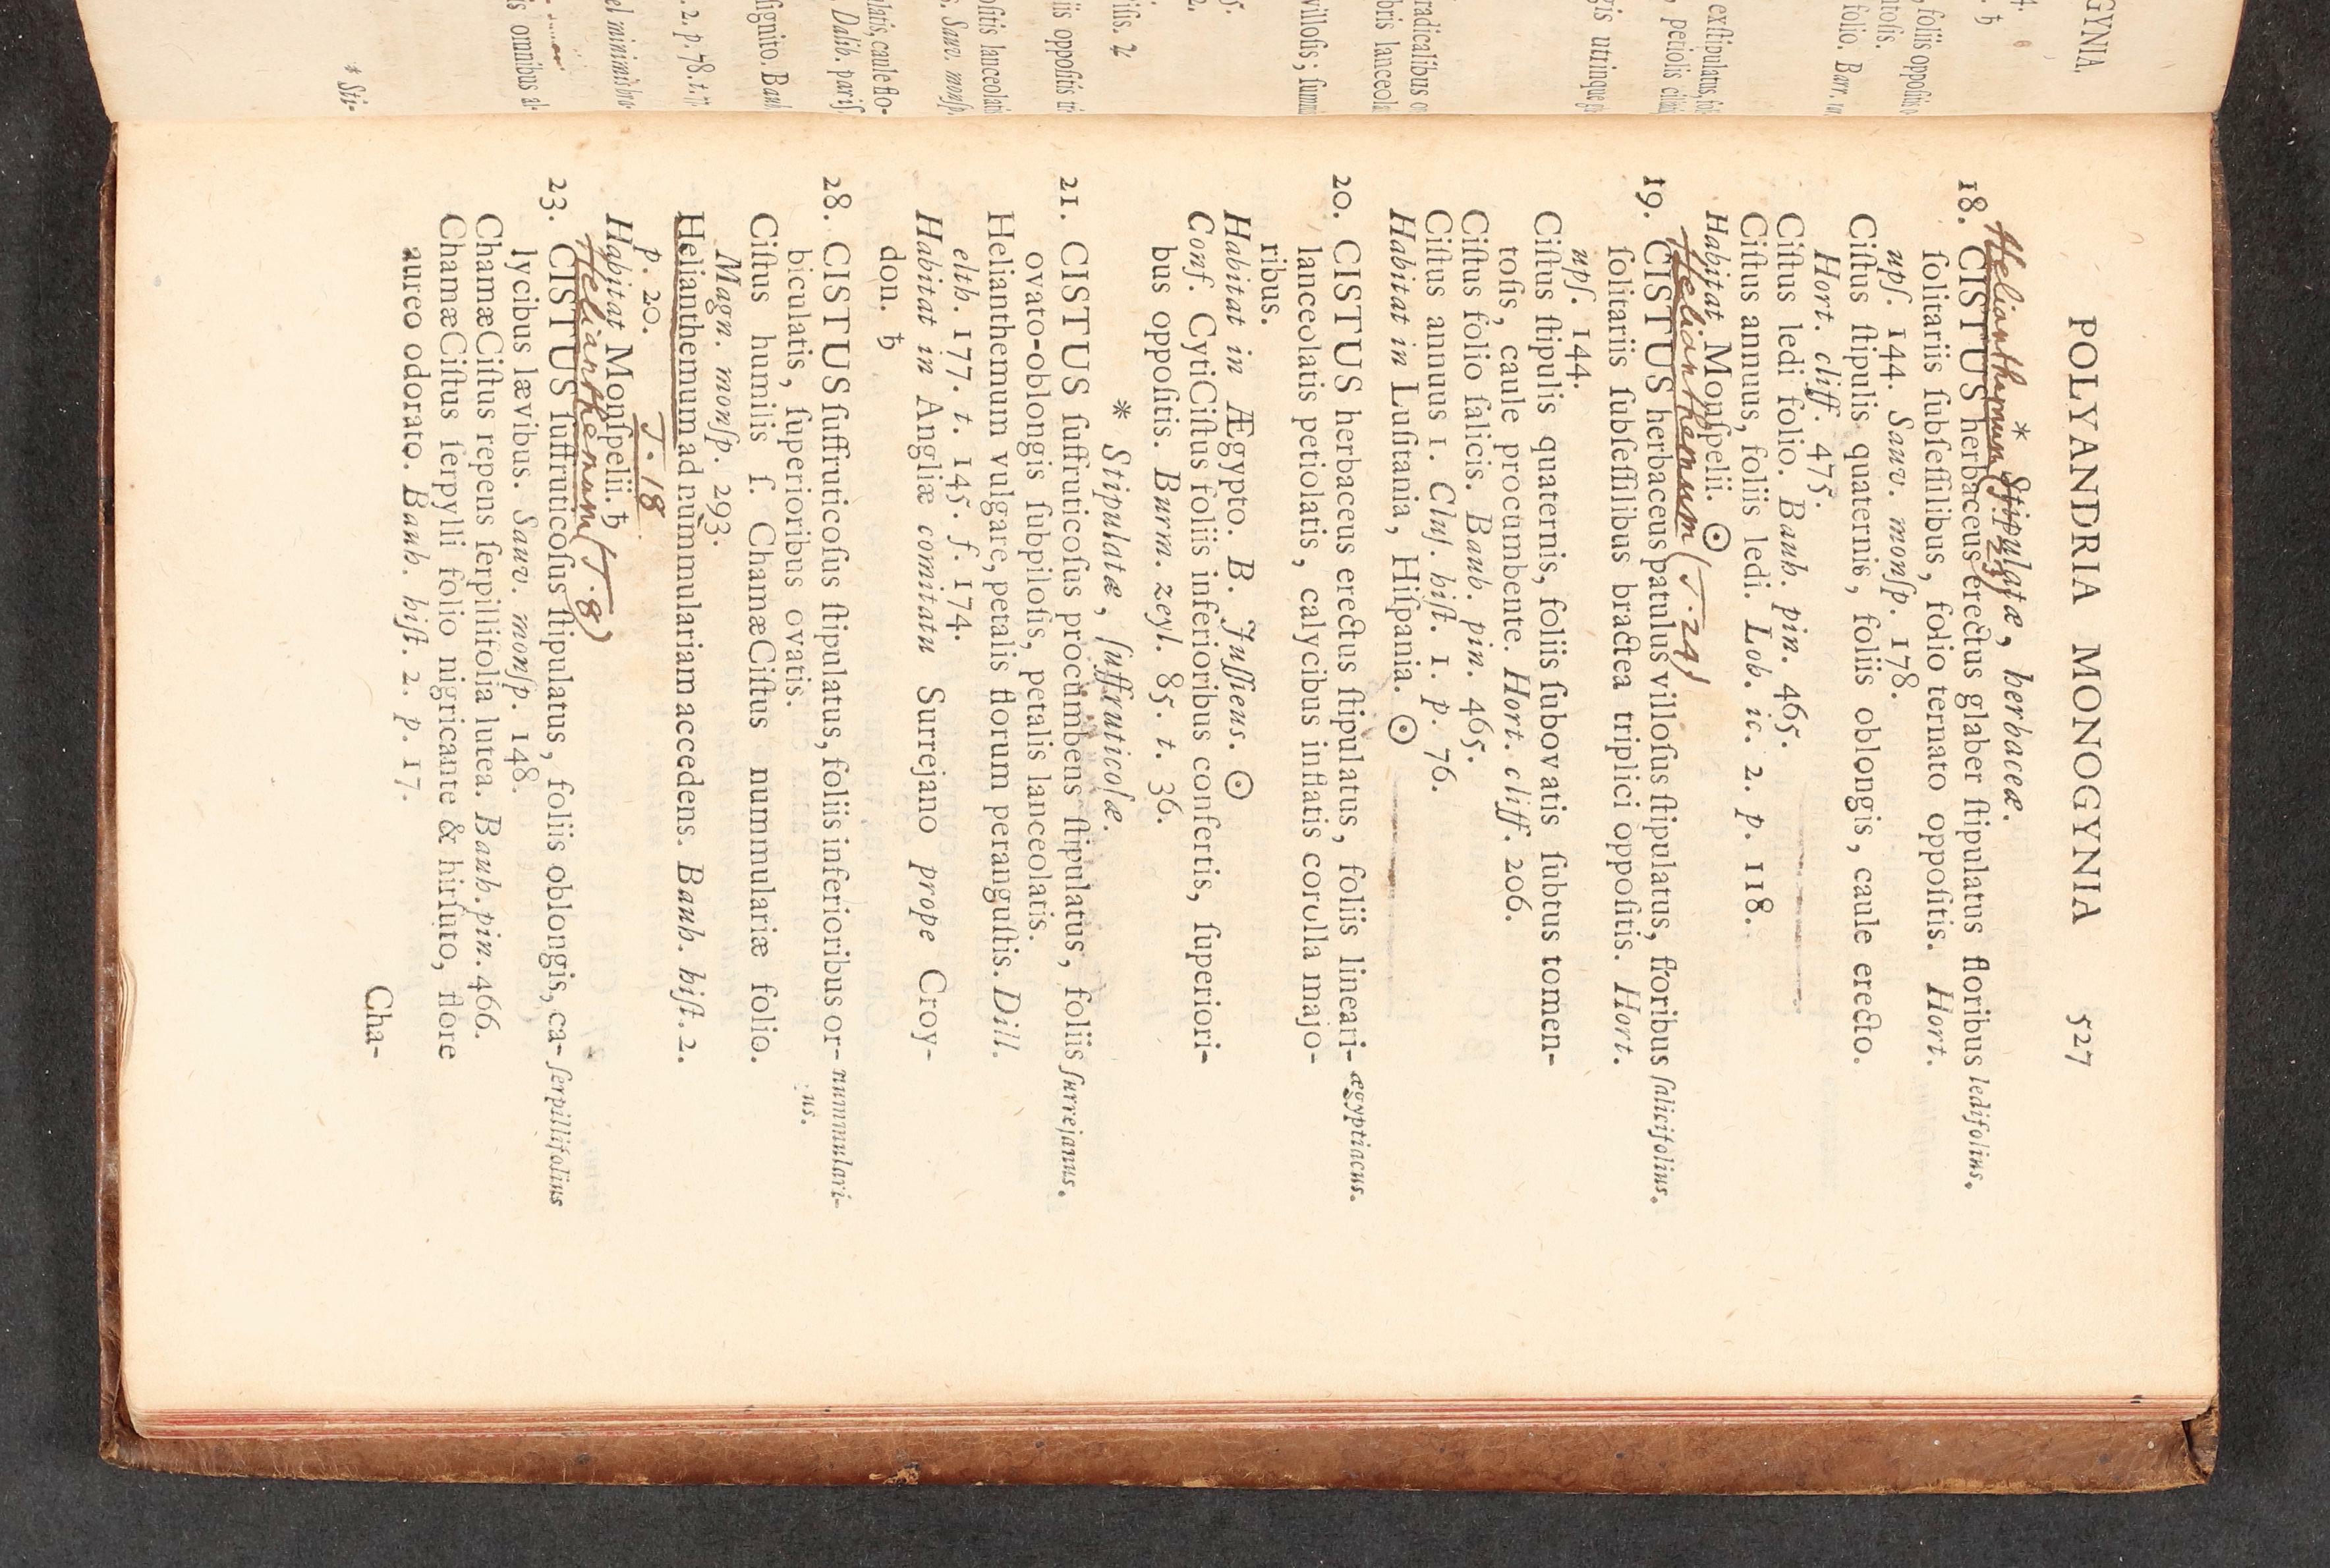 POLYANDRIA MONOGYNIA 527
* Stipulatæ, herbaceæ.
Helianthemum
18. CISTUS herbaceus erectus glaber ſtipulatus floribus ledifolius.
ſolitariis ſubſeſſilibus, folio ternato oppoſitis. Hort.
upſ. 144. Sauv. monſp. 178.
Ciſtus ſtipulis quaternis, foliis oblongis, caule erecto.
Hort. cliff. 475.
Ciſtus ledi folio. Bauh. pin. 465.
Ciſtus annuus, foliis ledi. Lob. ic. 2. p. 118.
Habitat Monſpelii. ☉
Helianthemum (T. 24)
19. CISTUS herbaceus patulus villoſus ſtipulatus, floribus ſalicifolius.
ſolitariis ſubſeſſilibus bractea triplici oppoſitis. Hort.
upſ. 144.
Ciſtus ſtipulis quaternis, foliis ſubovatis ſubtus tomen-
toſis, caule procumbente. Hort. cliff. 206.
Ciſtus folio ſalicis. Bauh. pin. 465.
Ciſtus annuus 1. Cluſ. hiſt. 1. p. 76.
Habitat in Luſitania, Hiſpania. ☉
20. CISTUS herbaceus erectus ſtipulatus, foliis lineari- ægyptiacus.
lanceolatis petiolatis, calycibus inflatis corolla majo-
ribus.
Habitat in Ægypto. B. Juſſieus. ☉
Conf. CytiCiſtus foliis inferioribus confertis, ſuperiori-
bus oppoſitis. Burm. zeyl. 85. t. 36.
* Stipulatæ, ſuffruticoſæ.
21. CISTUS ſuffruticoſus procumbens ſtipulatus, foliis ſurrejanus.
ovato-oblongis ſubpiloſis, petalis lanceolatis.
Helianthemum vulgare, petalis florum peranguſtis. Dill.
elth. 177. t. 145. f. 174.
Habitat in Angliæ comitatu Surrejano prope Croy-
don. ♄
28. CISTUS ſuffruticoſus ſtipulatus, foliis inferioribus or- nummulari-
biculatis, ſuperioribus ovatis. us.
Ciſtus humilis ſ. ChamæCiſtus nummulariæ folio.
Magn. monſp. 293.
Helianthemum ad nummulariam accedens. Bauh. hiſt. 2.
p. 20. T. 18
Habitat Monſpelii. ♄
Helianthemum (T. 8)
23. CISTUS ſuffruticoſus ſtipulatus, foliis oblongis, ca- ſerpillifolius
lycibus lævibus. Sauv. monſp. 148.
ChamæCiſtus repens ſerpillifolia lutea. Bauh. pin. 466.
ChamæCiſtus ſerpylli folio nigricante & hirſuto, flore
aureo odorato. Bauh. hiſt. 2. p. 17.
Cha-